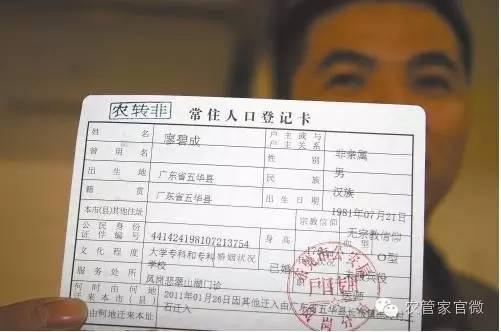 农转非 常住人口登记卡
姓名 廖碧成 户主或与户主关系 非亲属
曾用名 性别 男
出生地 广东省五华县 民族 汉族
籍贯 广东省五华县 出生日期 1981年07月21日
本市(县)其他住址 宗教信仰 无宗教信仰
公民身份证件编号 441424198107213754 身高 O型
文化程度 大学专科和专科学校 婚姻状况 已婚
服务处所 凤岗 山湖门诊
何时由何地迁来本市(县) 2011年01月26日因其他迁入由广东省五华县
农管家官微